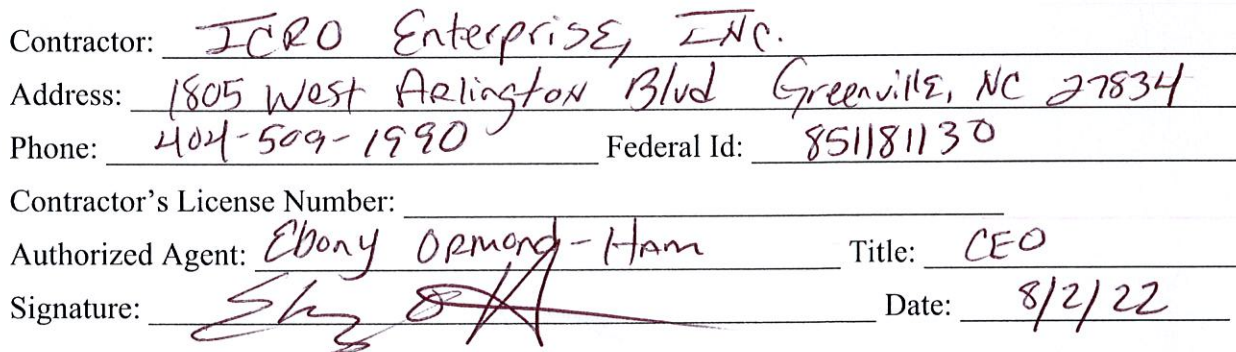 Contractor: ICRO Enterprise, INC.
Address: 1805 West Arlington Blvd Greenville, NC 27834
Phone: 404-509-1990 Federal Id: 851181130
Contractor's License Number:
Authorized Agent: Ebony Ormond-Ham Title: CEO
Signature: Date: 8/2/22